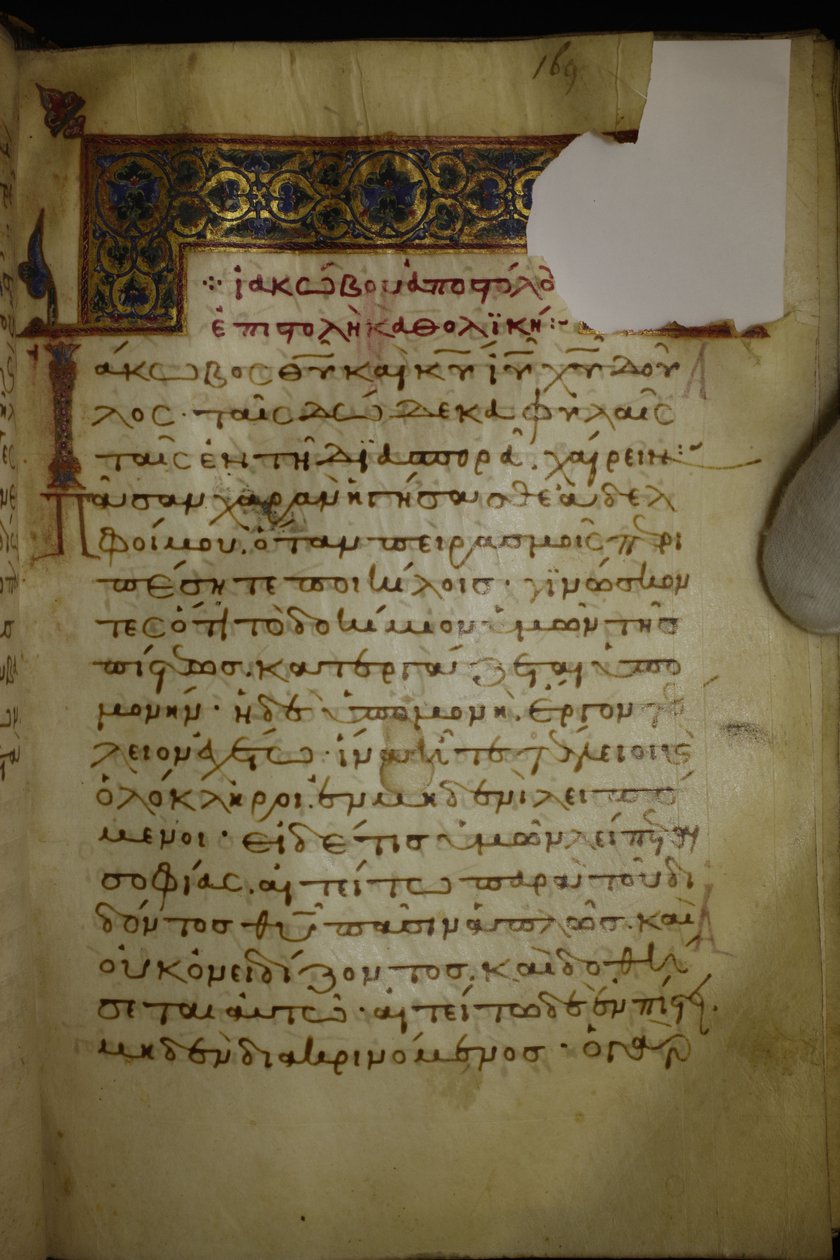 169
ἰακώβου ἀποστόλο
ἐπιστολὴ καθολϊκή:~
Ἰάκωβος θῦ καὶ κῦ ἰῦ χῦ δοῦ
λος· ταῖς δώδεκα φυλαῖς
ταῖς ἐν τῆ δϊασπορᾶ. χαίρειν:~
Πᾶσαν χαρὰν ἡγήσασθε ἀδελ
φοί μου. ὅταν πειρασμοῖς περι
πέσητε ποικίλοισ· γϊνώσκον
τες ὅτι τὸ δοκίμιον ὑμῶν τῆς
πίστεωσ. κατεργάζεται ὑπο
μονήν· ἡ δὲ ὑπομονὴ. ἔργον τέ
λειον ἐχέτω· ἵνα ἦτε τέλειοι κὲ
ὁλόκληροι. ἐν μηδενὶ λειπό
μενοι· εἰ δέ τισ ὑμῶν λείπεται
σοφίας. αἰτείτω παρὰ τοῦ δι
δόντοσ θῦ πᾶσιν ἁπλῶσ. καὶ
οὐκ ὀνειδίζοντοσ. καὶ δοθή
σεται αὐτῶ· αἰτείτω δὲ ἐν πίστει.
μηδὲν διακρινόμενοσ· ὁ γὰρ